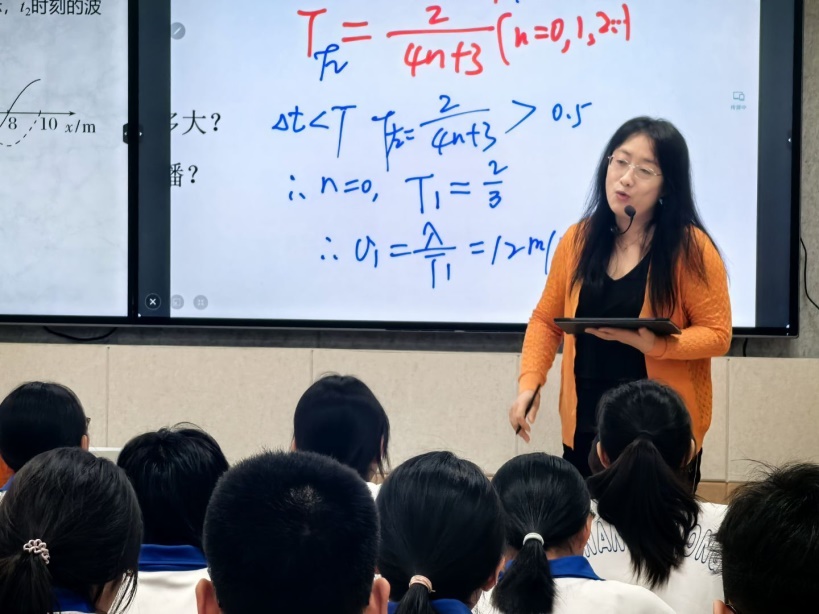 t₂时刻的波
8 10 x/m
多大?
播?
T左 = 2/(4n+3) (n=0,1,2…)
Δt<T T左= 2/(4n+3) > 0.5
∴ n=0, T₁ = 2/3
∴ υ₁ = λ/T₁ = 12 m/